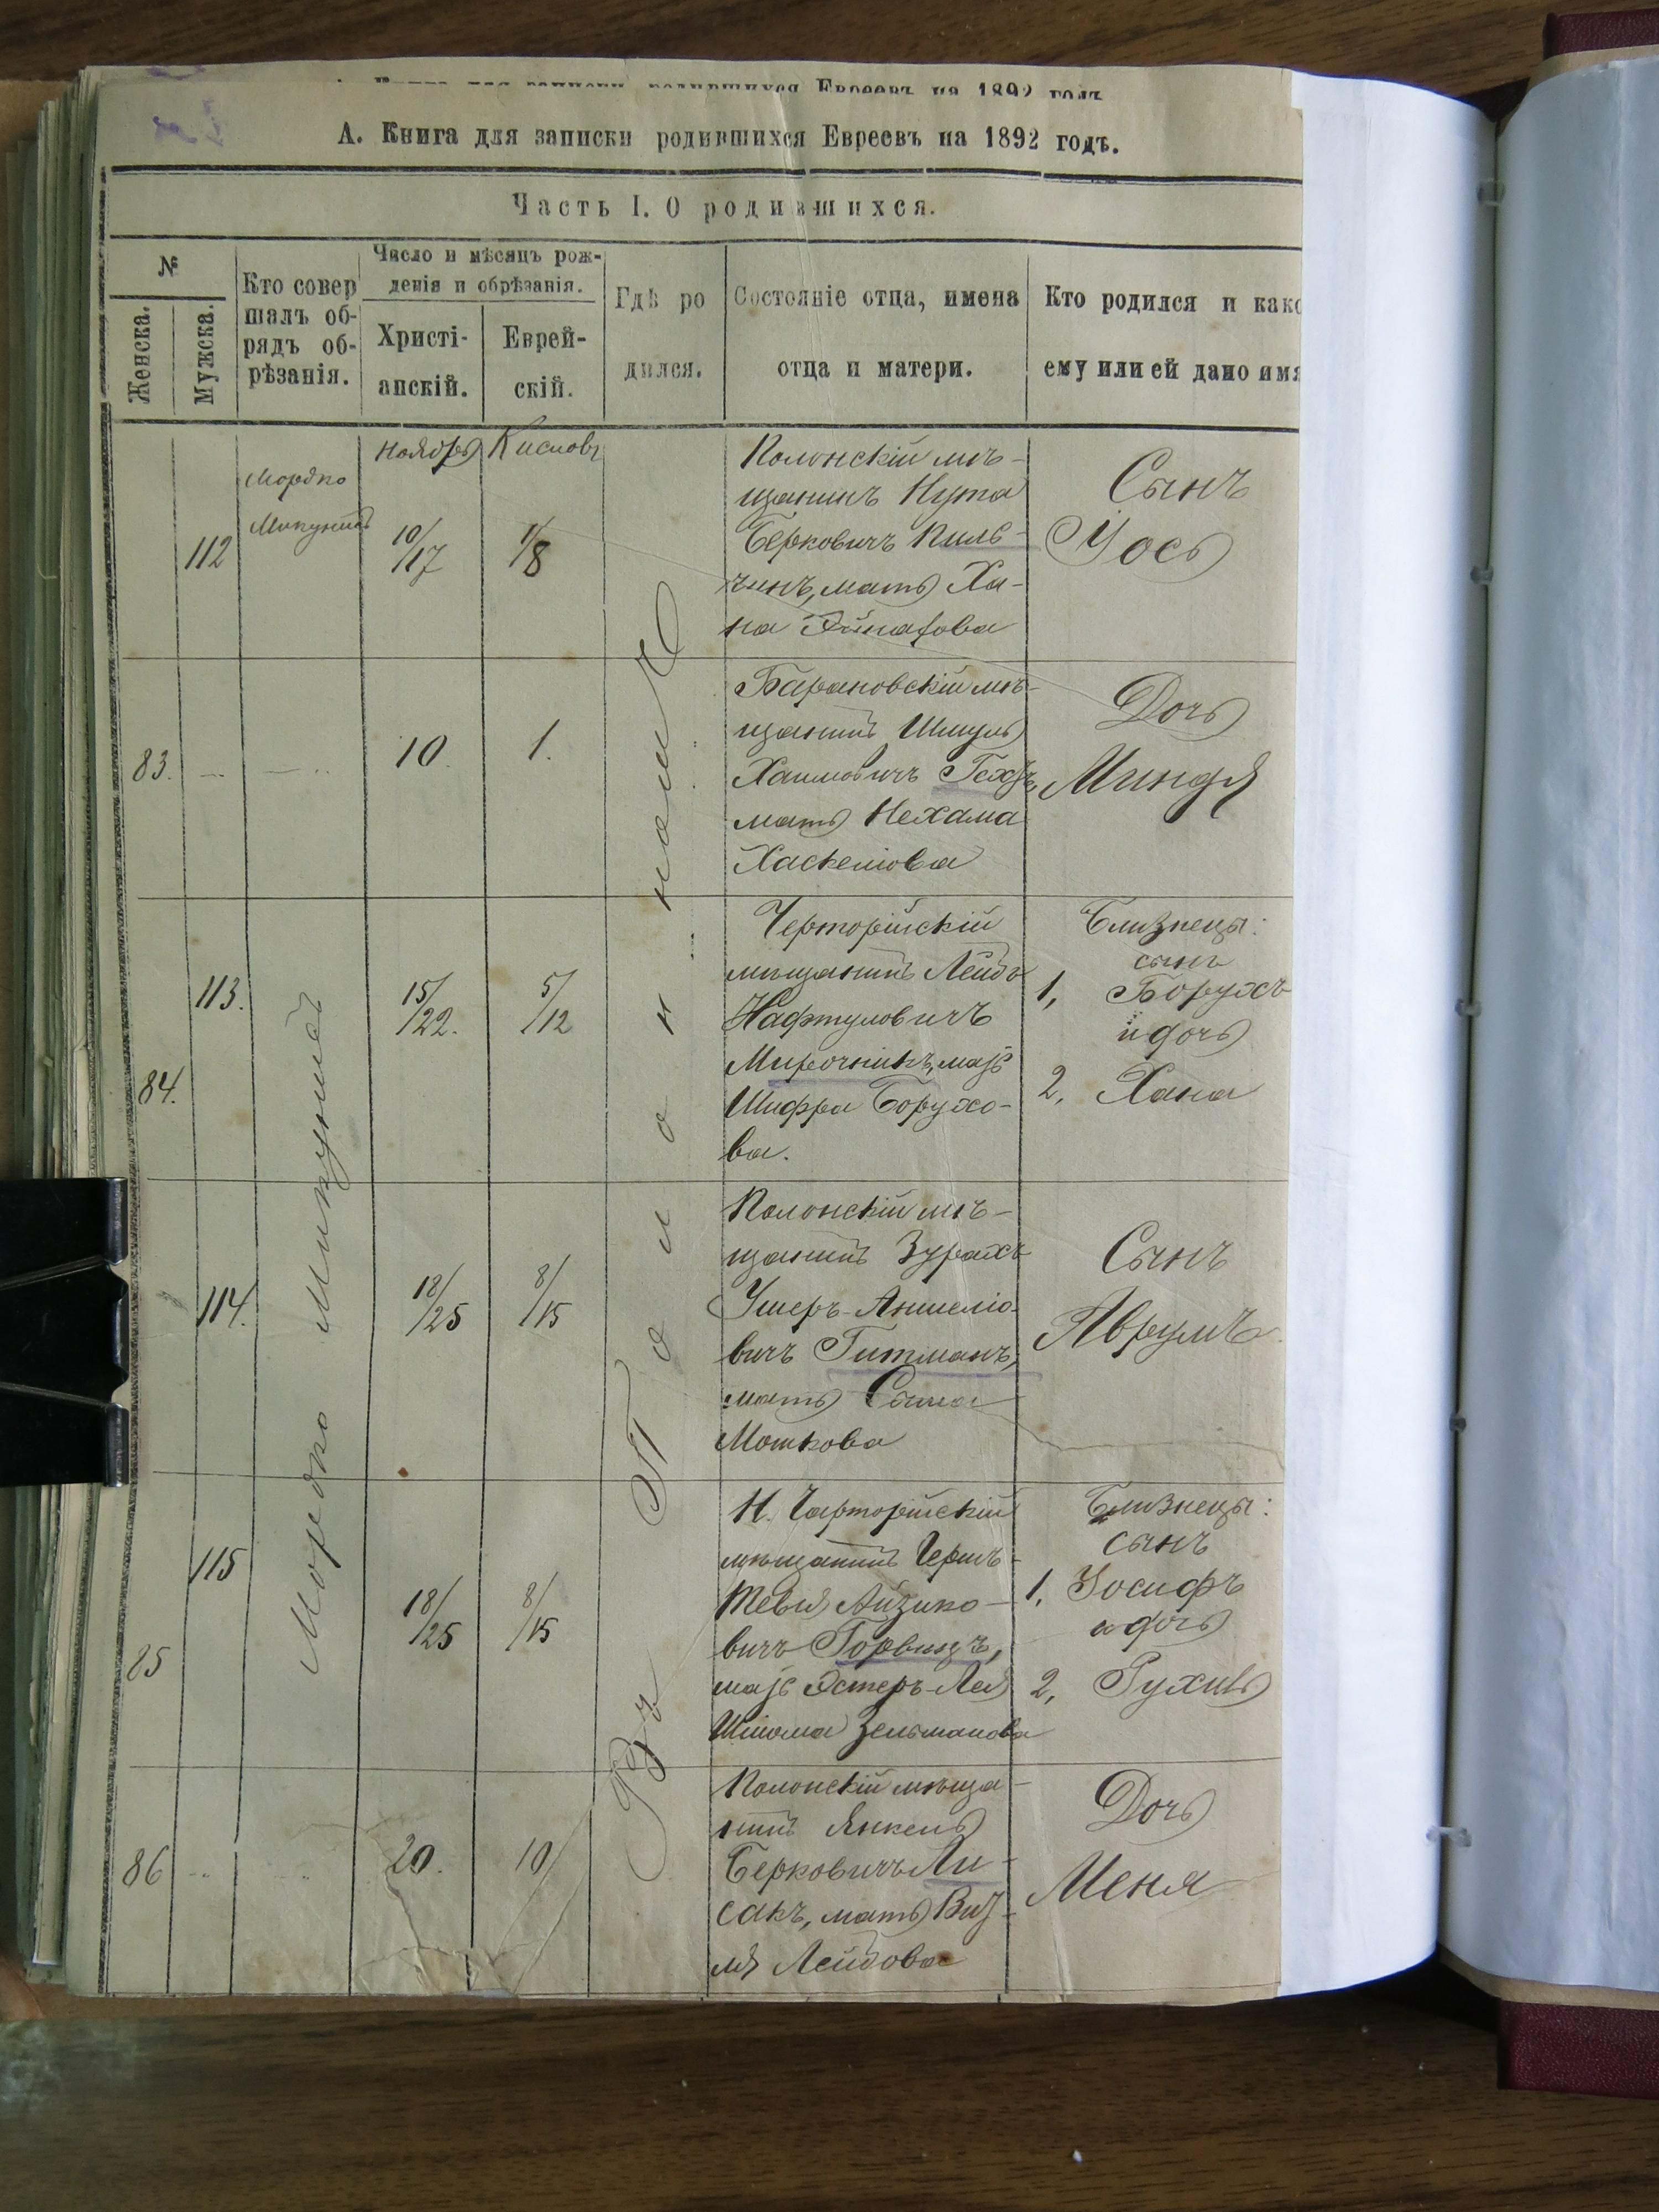 А. Книга для записки родившихся Евреевъ на 1892 годъ.
Часть I. О родившихся.
№
Женска.
Мужска.
Кто совер
шалъ об-
рядъ об-
рѣзанія.
Число и мѣсяцъ рож-
денія и обрѣзанія.
Христі-
анскій.
Еврей-
скій.
Гдѣ ро
дился.
Состояніе отца, имена
отца и матери.
Кто родился и како
ему или ей дано имя
112
Мордко
Микунисъ
Ноябрь
10/17
Кислевъ
1/8
Въ Полонномъ
Полонскій мѣ-
щанинъ Нута
Берковичъ Пиль-
чинъ, мать Ха-
на
Сынъ
Іось
83.
10.
1.
Барановскій мѣ-
щанинъ Шмуль
Хаимовичъ
мать Нехама
Хаскеліова
Дочь
Миндя
113.
84.
Мордко Микунисъ
15/22.
5/12
Черторійскій
мѣщанинъ Лейбъ
Нафтуловичъ
Мирочникъ, мать
Шифра Борухо-
ва.
Близнецы:
сынъ
1, Борухъ
и дочь
2, Хана
114.
18/25
8/15
Полонскій мѣ-
щанинъ Зурахъ
Ушеръ-Аншеліо-
вичъ Гитманъ,
мать Сима
Мошкова
Сынъ
Аврумъ
115
85
18/25
8/15
Н. Чарторійскій
мѣщанинъ Гершъ-
Тевья Айзико-
вичъ Горвицъ,
мать Эстеръ-Лея
Шліома Зельманова
Близнецы:
сынъ
1, Іосифъ
и дочь
2, Рухль
86
20.
10
Полонскій мѣща-
нинъ Янкель
Берковичъ Ли-
сакъ, мать
Лейбова
Дочь
Меня